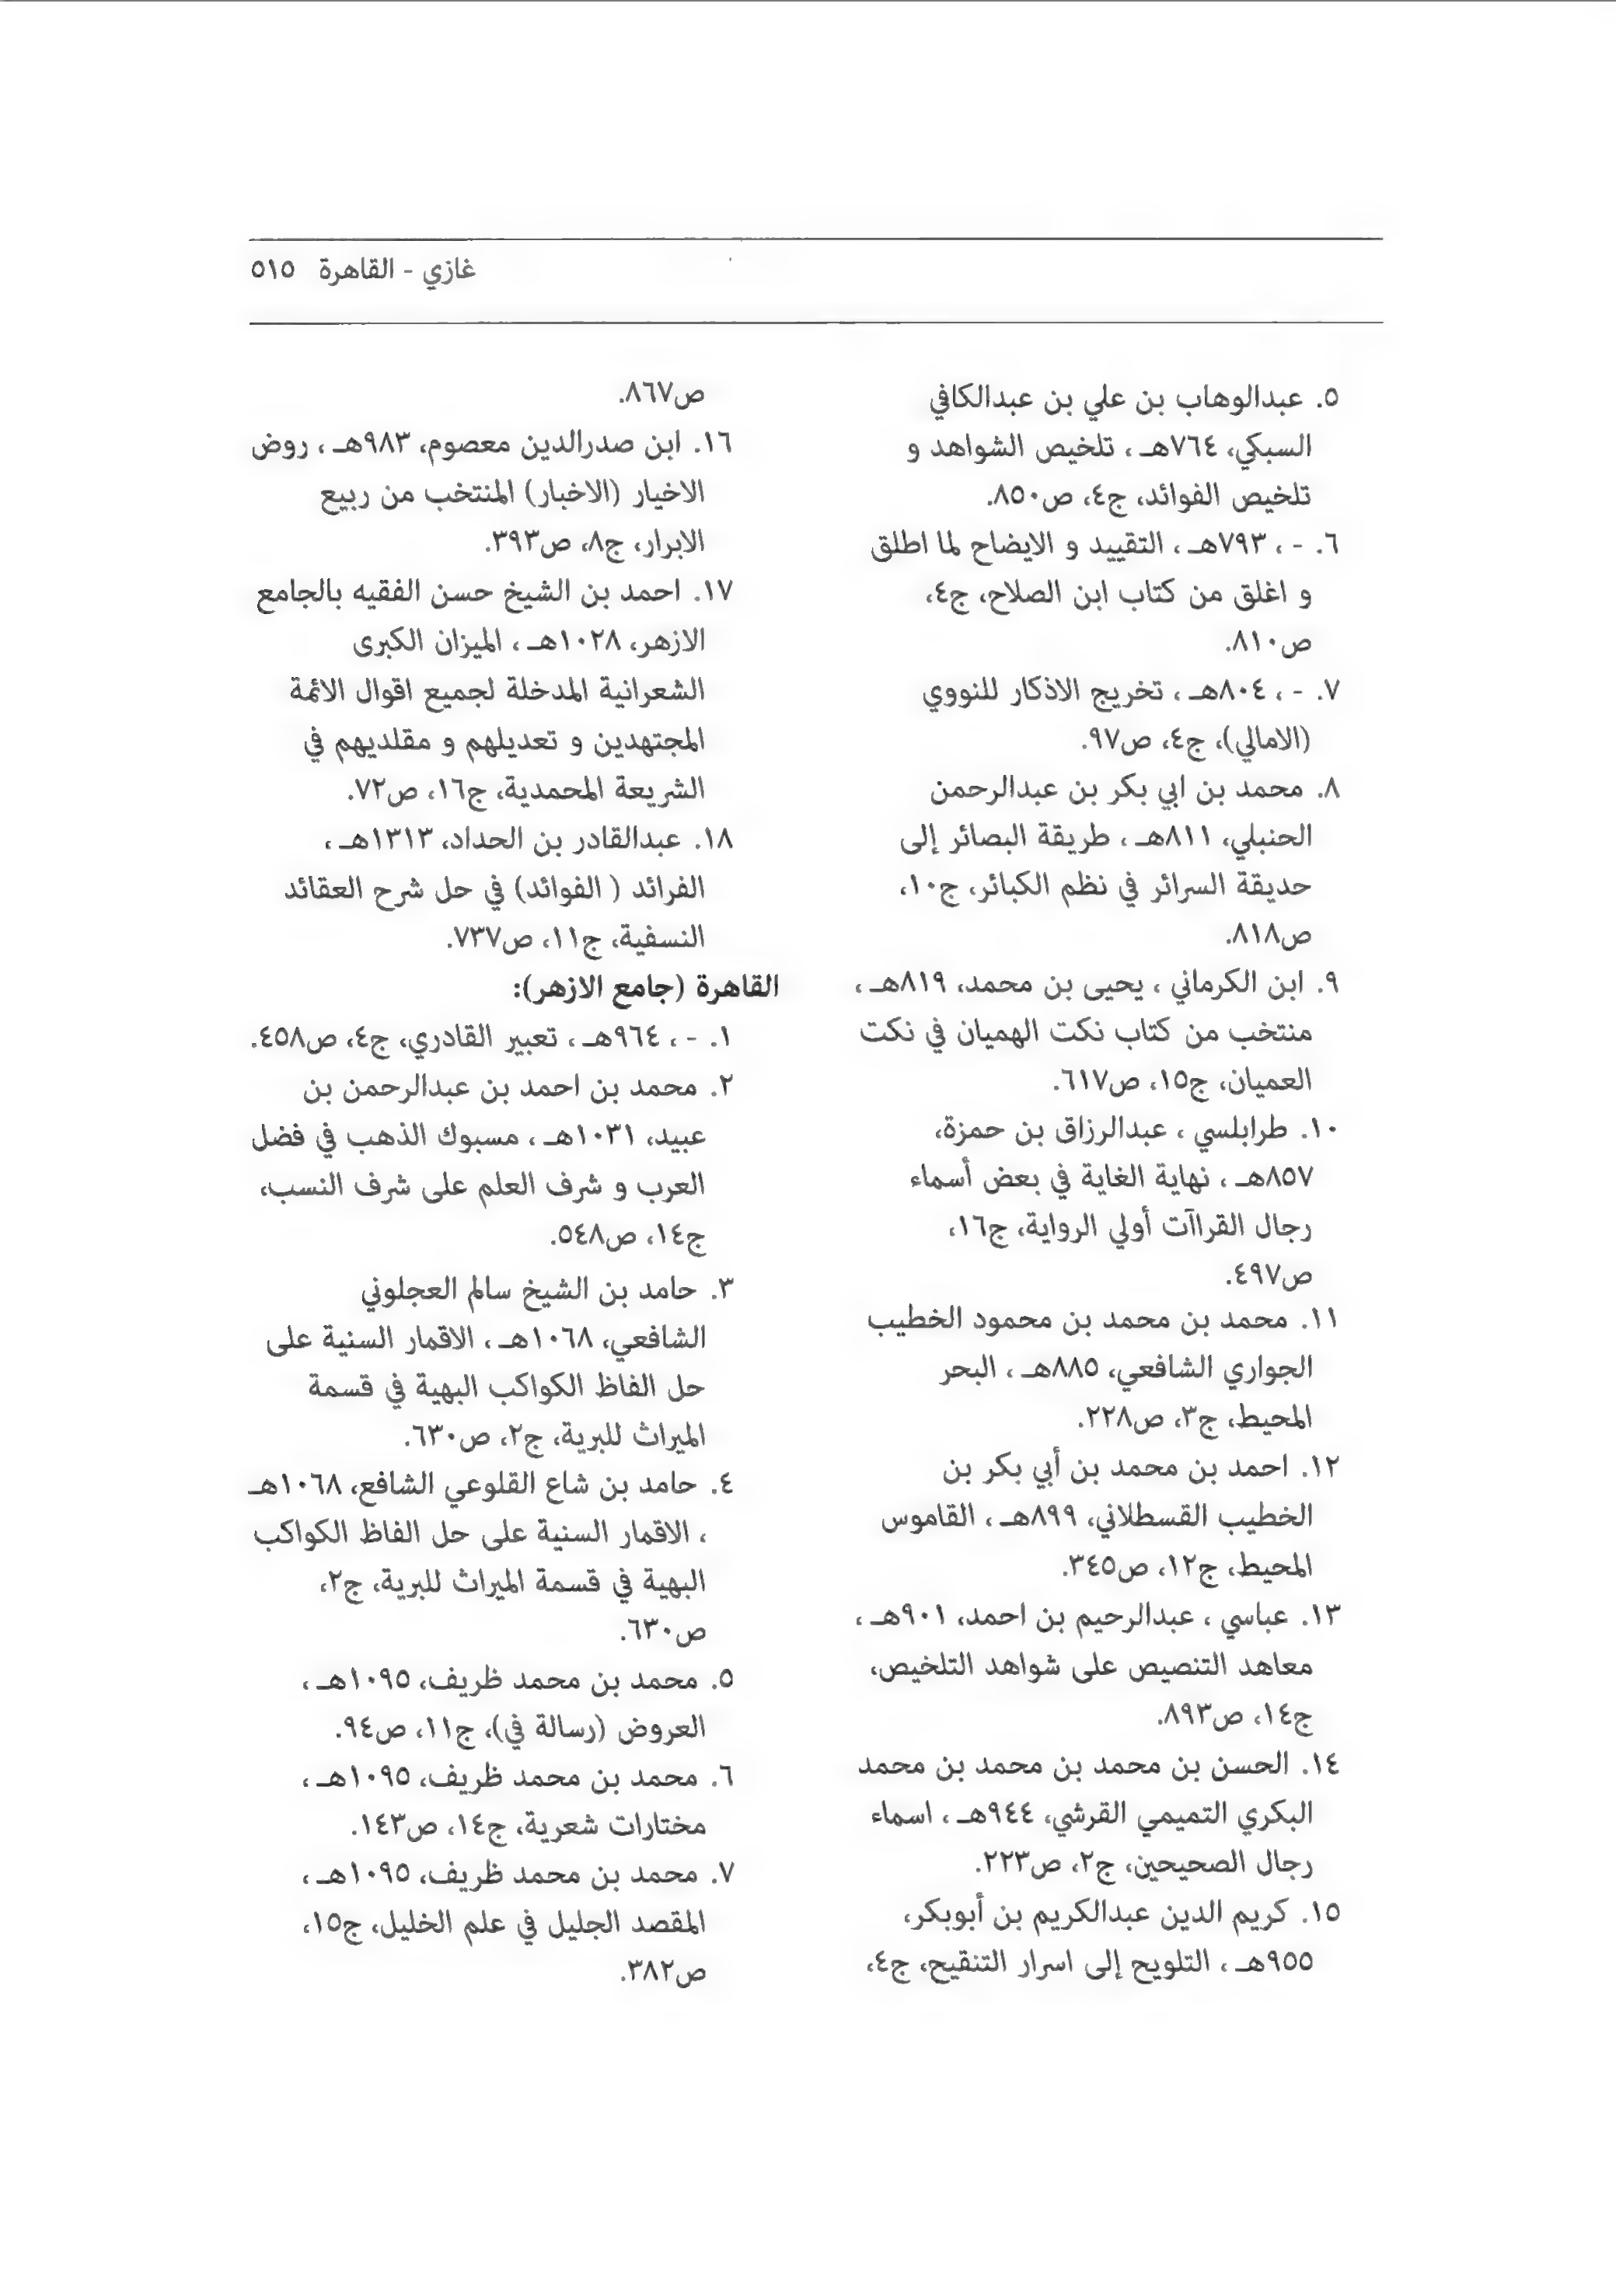 غازي - القاهرة ٥١٥
٥. عبدالوهاب بن علي بن عبدالكافي
السبكي، ٧٦٤هـ ، تلخيص الشواهد و
تلخيص الفوائد، ج٤، ص٨٥٠.
٦. - ، ٧٩٣هـ ، التقييد و الايضاح لما اطلق
و اغلق من كتاب ابن الصلاح، ج٤،
ص٨١٠.
٧. - ، ٨٠٤هـ ، تخريج الاذكار للنووي
(الامالي)، ج٤، ص٩٧.
٨. محمد بن ابي بكر بن عبدالرحمن
الحنبلي، ٨١١هـ ، طريقة البصائر إلى
حديقة السرائر في نظم الكبائر، ج١٠،
ص٨١٨.
٩. ابن الكرماني ، يحيى بن محمد، ٨١٩هـ ،
منتخب من كتاب نكت الهميان في نكت
العميان، ج١٥، ص٦١٧.
١٠. طرابلسي ، عبدالرزاق بن حمزة،
٨٥٧هـ ، نهاية الغاية في بعض أسماء
رجال القراآت أولي الرواية، ج١٦،
ص٤٩٧.
١١. محمد بن محمد بن محمود الخطيب
الجواري الشافعي، ٨٨٥هـ ، البحر
المحيط، ج٣، ص٢٢٨.
١٢. احمد بن محمد بن أبي بكر بن
الخطيب القسطلاني، ٨٩٩هـ ، القاموس
المحيط، ج١٢، ص٣٤٥.
١٣. عباسي ، عبدالرحيم بن احمد، ٩٠١هـ ،
معاهد التنصيص على شواهد التلخيص،
ج١٤، ص٨٩٣.
١٤. الحسن بن محمد بن محمد بن محمد
البكري التميمي القرشي، ٩٤٤هـ ، اسماء
رجال الصحيحين، ج٢، ص٢٢٣.
١٥. كريم الدين عبدالكريم بن أبوبكر،
٩٥٥هـ ، التلويح إلى اسرار التنقيح، ج٤،
ص٨٦٧.
١٦. ابن صدرالدين معصوم، ٩٨٣هـ ، روض
الاخيار (الاخبار) المنتخب من ربيع
الابرار، ج٨، ص٣٩٣.
١٧. احمد بن الشيخ حسن الفقيه بالجامع
الازهر، ١٠٢٨هـ ، الميزان الكبرى
الشعرانية المدخلة لجميع اقوال الائمة
المجتهدين و تعديلهم و مقلديهم في
الشريعة المحمدية، ج١٦، ص٧٢.
١٨. عبدالقادر بن الحداد، ١٣١٣هـ ،
الفرائد ( الفوائد) في حل شرح العقائد
النسفية، ج١١، ص٧٣٧.
القاهرة (جامع الازهر):
١. - ، ٩٦٤هـ ، تعبير القادري، ج٤، ص٤٥٨.
٢. محمد بن احمد بن عبدالرحمن بن
عبيد، ١٠٣١هـ ، مسبوك الذهب في فضل
العرب و شرف العلم على شرف النسب،
ج١٤، ص٥٤٨.
٣. حامد بن الشيخ سالم العجلوني
الشافعي، ١٠٦٨هـ ، الاقمار السنية على
حل الفاظ الكواكب البهية في قسمة
الميراث للبرية، ج٢، ص٦٣٠.
٤. حامد بن شاع القلوعي الشافع، ١٠٦٨هـ
، الاقمار السنية على حل الفاظ الكواكب
البهية في قسمة الميراث للبرية، ج٢،
ص٦٣٠.
٥. محمد بن محمد ظريف، ١٠٩٥هـ ،
العروض (رسالة في)، ج١١، ص٩٤.
٦. محمد بن محمد ظريف، ١٠٩٥هـ ،
مختارات شعرية، ج١٤، ص١٤٣.
٧. محمد بن محمد ظريف، ١٠٩٥هـ ،
المقصد الجليل في علم الخليل، ج١٥،
ص٣٨٢.